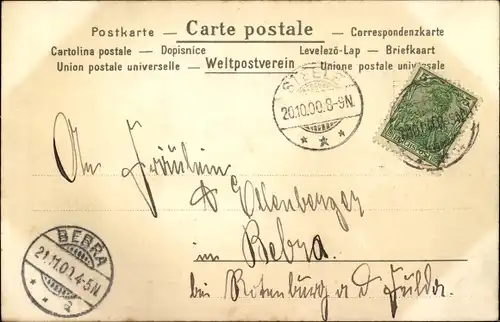 Postkarte — Carte postale — Correspondenzkarte
Cartolina postale — Dopisnice Levelező-Lap — Briefkaart
Union postale universelle — Weltpostverein — Unione postale universale
STEELE
20.10.00.8-9N.
An Fräulein
A Ellenberger
in Bebra.
bei Rotenburg a d Fulda.
BEBRA
21.11.00.4-5N.